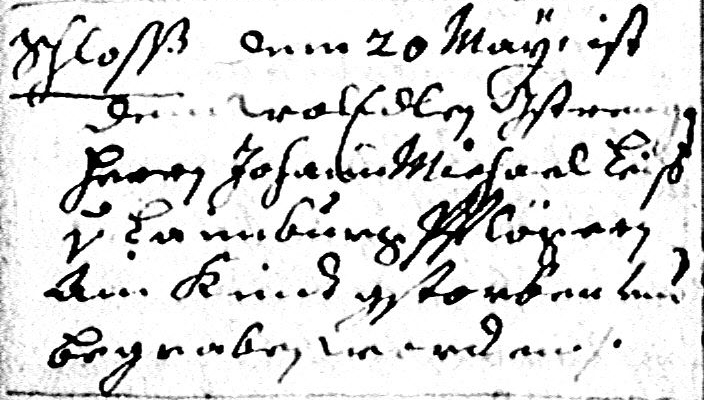 Schloss denn 20 Maÿ ist
dem wolEdlen Gstreng
Herrn Johann Michael
Pflögern
Ain Kindt gstorben und
begraben worden.